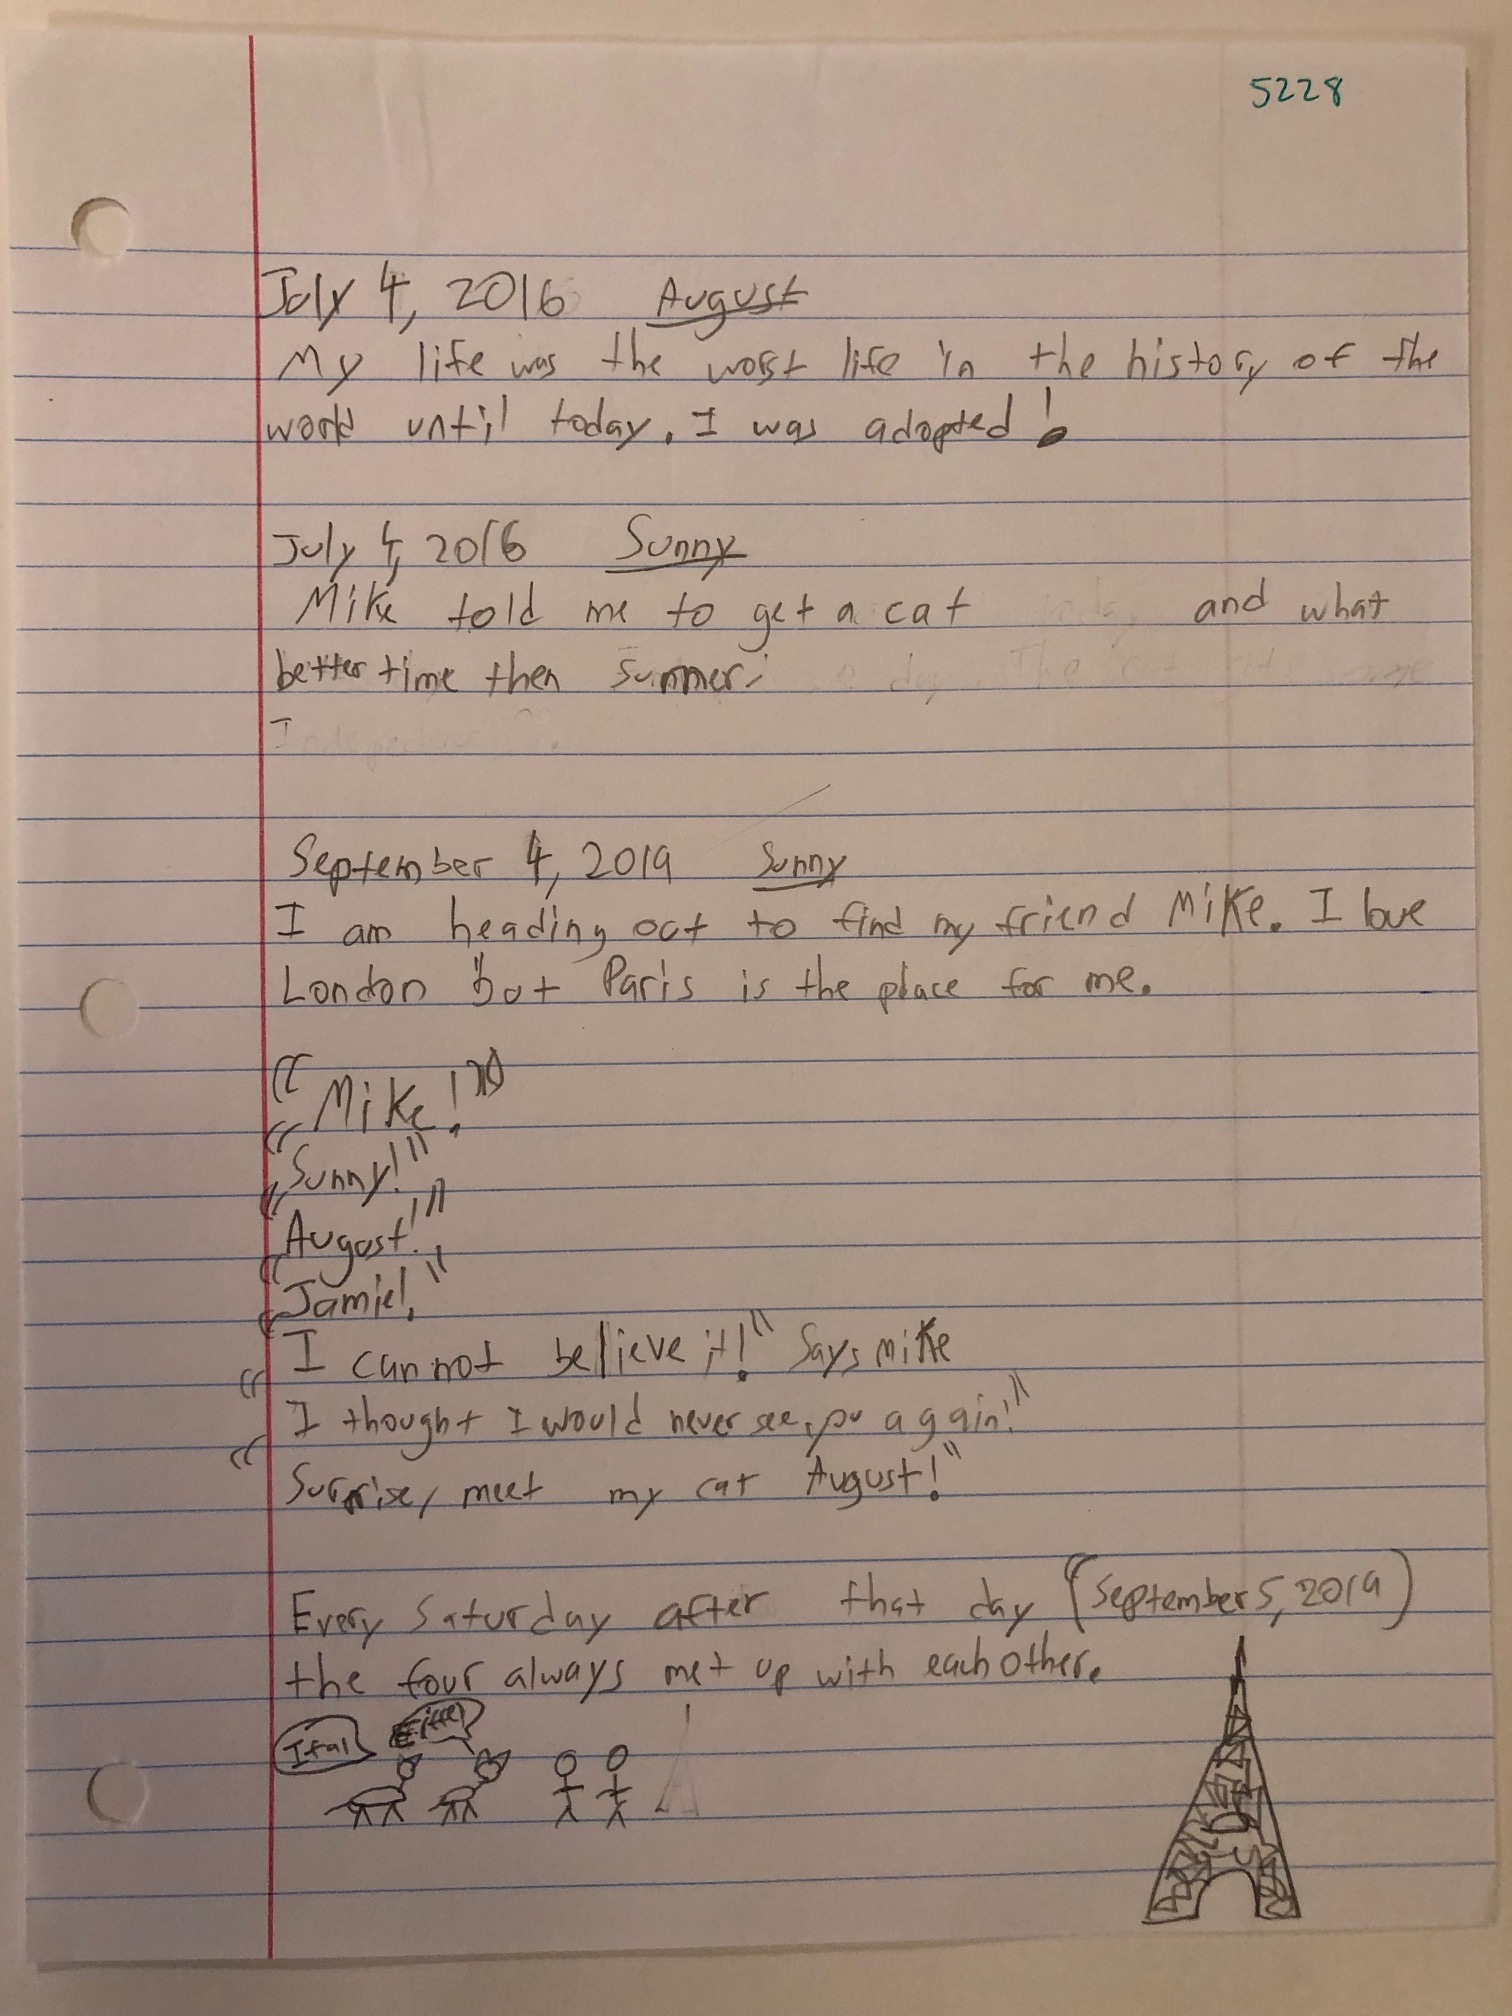 5228
July 4, 2016 August
My life was the worst life in the history of the
world until today. I was adopted!
July 4, 2016 Sunny
Mike told me to get a cat and what
better time then summer.
I
September 4, 2019 Sunny
I am heading out to find my friend Mike. I love
London but Paris is the place for me.
"Mike!"
"Sunny!"
"August!"
"Jamiel."
"I cannot believe it!" Says Mike
"I thought I would never see you again!"
"Surprise, meet my cat August!"
Every Saturday after that day (September 5, 2019)
the four always met up with each other.
Eiffel